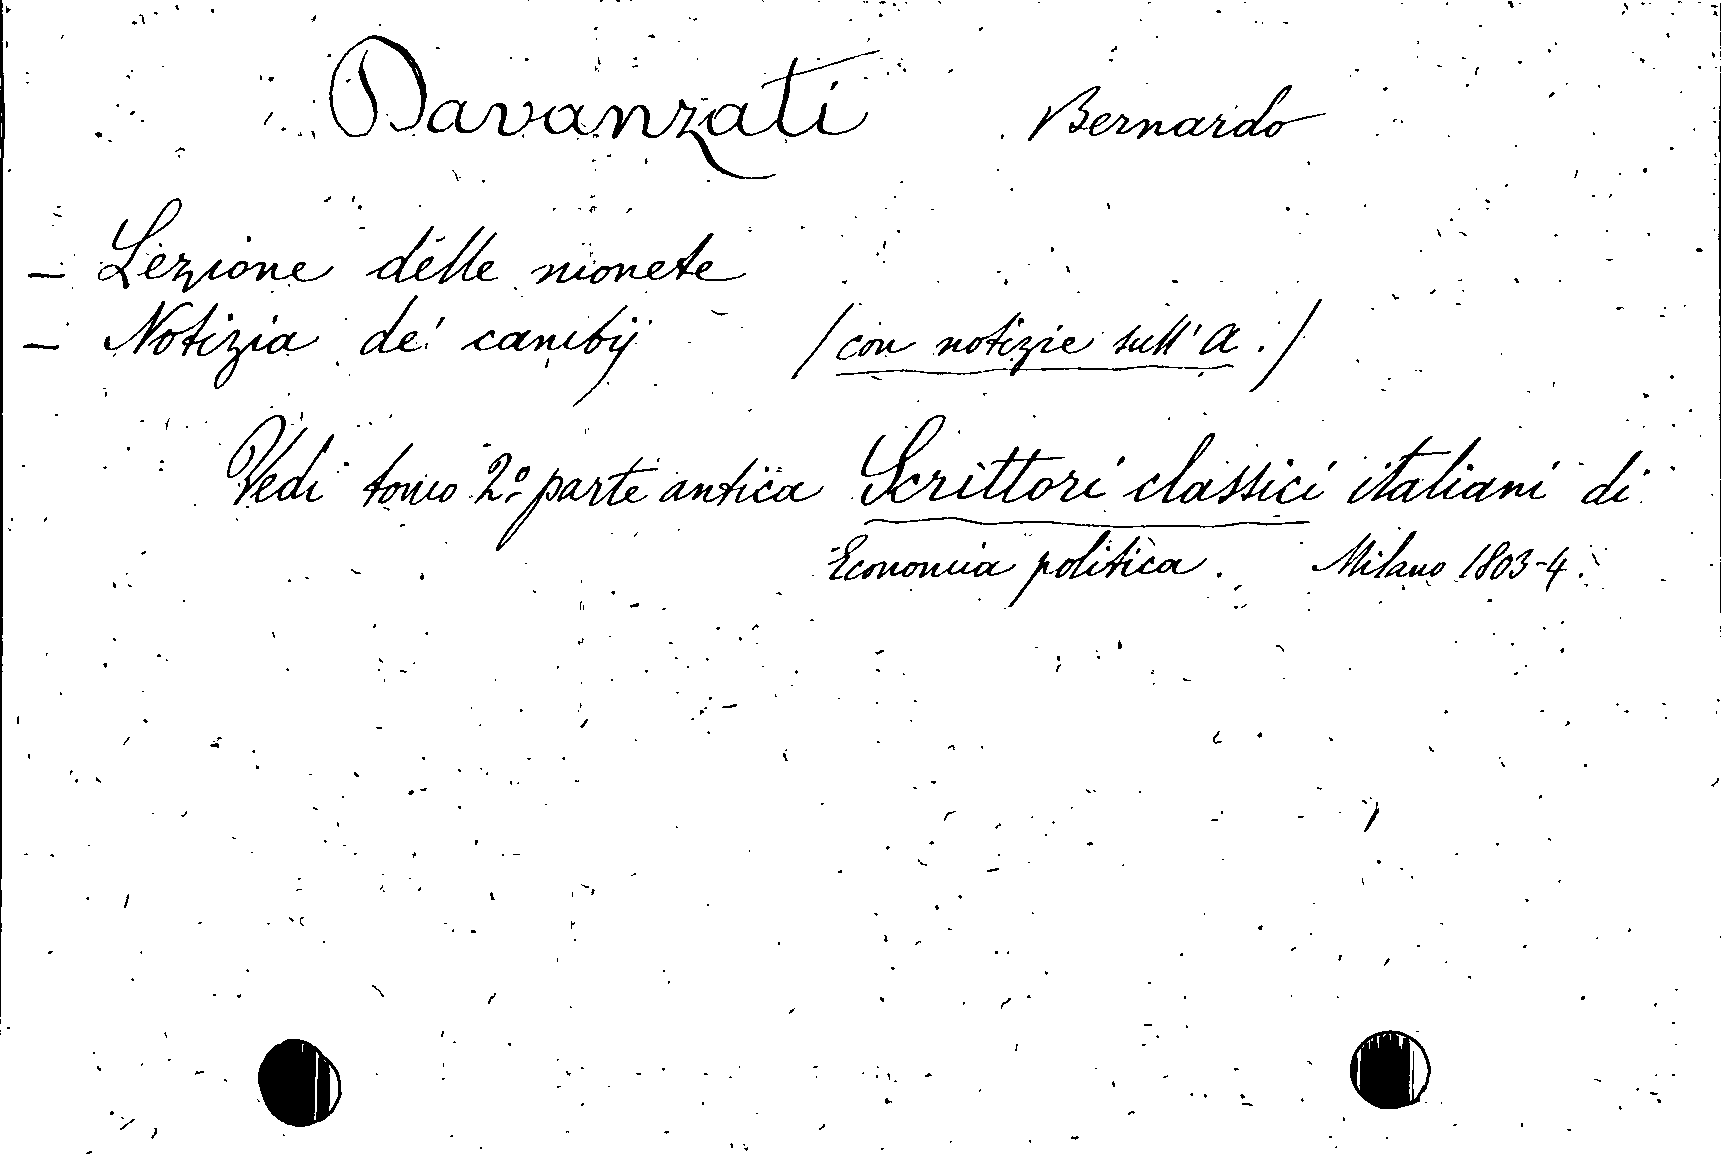 Davanzati Bernardo
- Lezione delle monete
- Notizia de' cambij /con notizie sull'A./
Vedi tomo 2º parte antica Scrittori classici italiani di
Economia politica. Milano 1803-4.